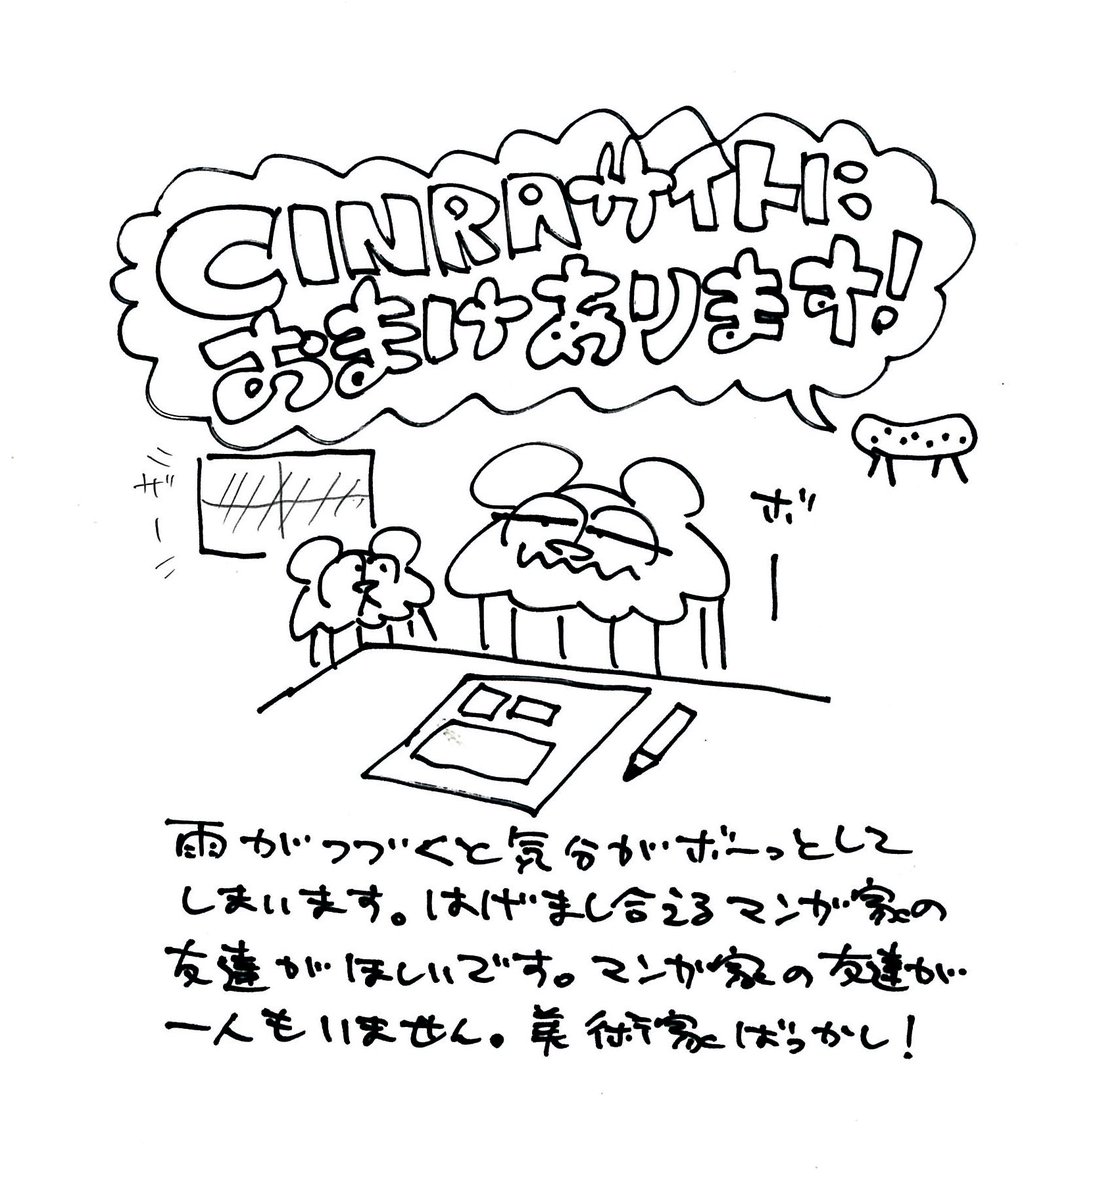 CINRAサイトに
おまけあります!
ザー
ボー
雨がつづくと気分がボーっとして
しまいます。はげまし合えるマンガ家の
友達がほしいです。マンガ家の友達が
一人もいません。美術家ばっかし!